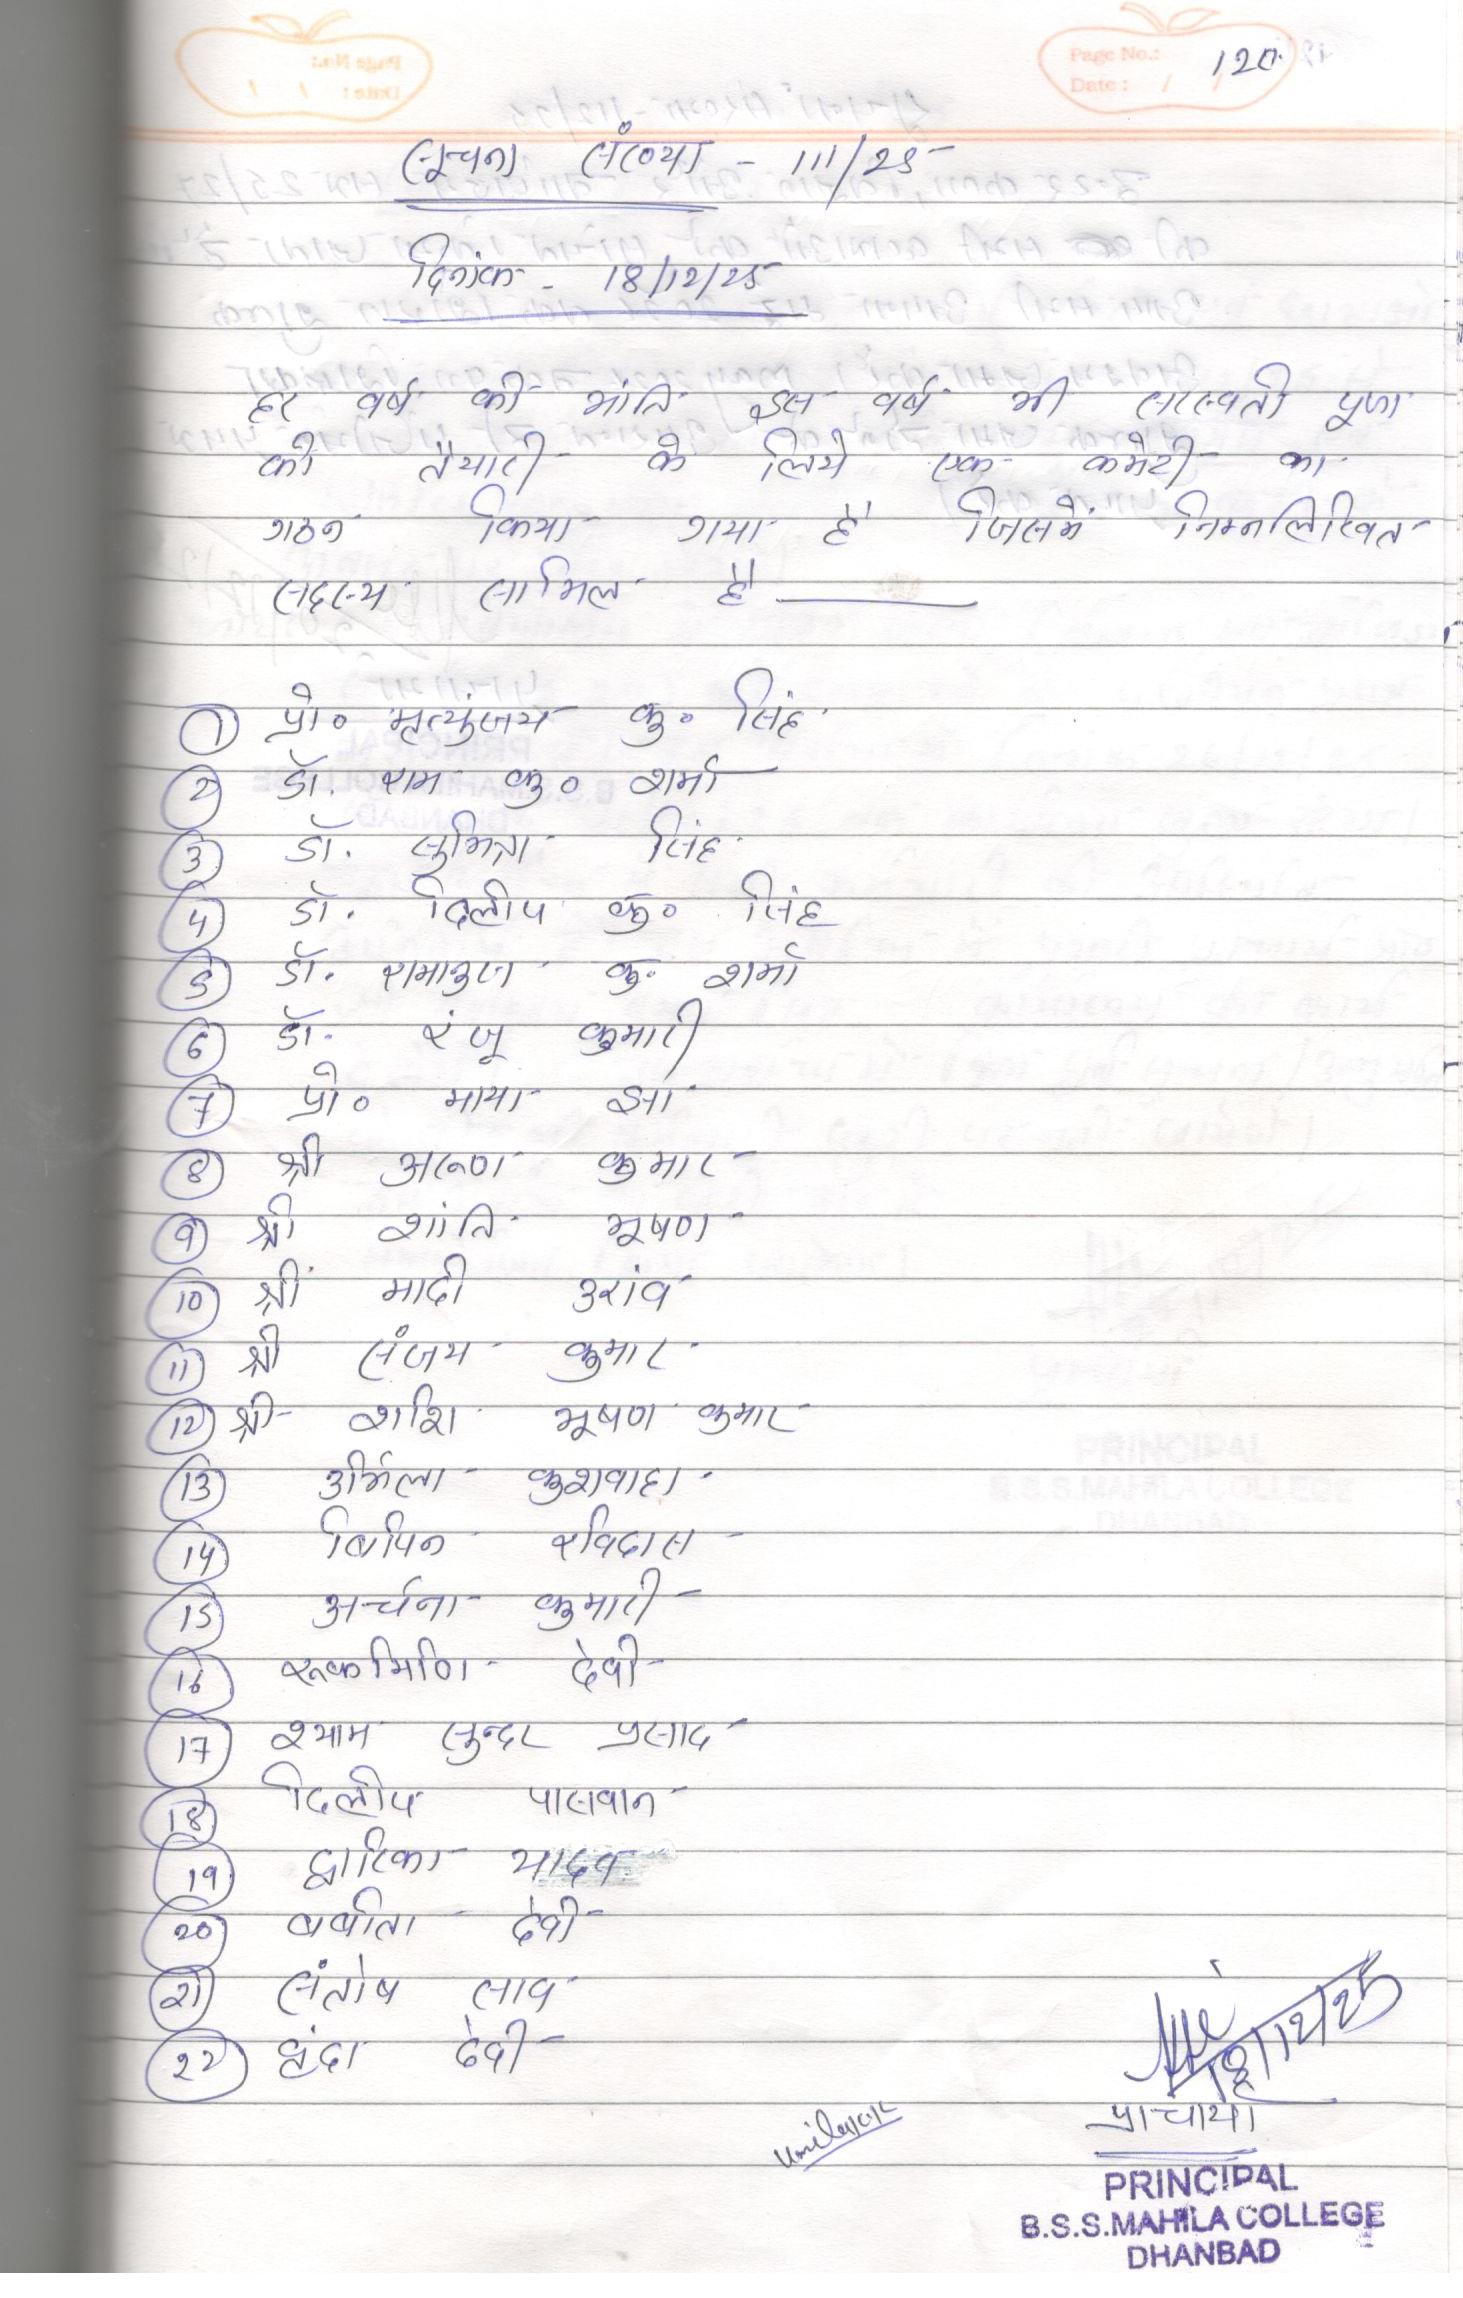 Page No.: 120
Date : / /
सूचना संख्या - 111/25
दिनांक - 18/12/25
हर वर्ष की भांति इस वर्ष भी सरस्वती पूजा
की तैयारी के लिये एक कमेटी का
गठन किया गया है जिसमें निम्नलिखित
सदस्य सामिल है
1 प्रो० मृत्युंजय कु० सिंह
2 डॉ. राम कु० शर्मा
3 डॉ. सुमित्रा सिंह
4 डॉ. दिलीप कु० सिंह
5 डॉ. रामानुज कु. शर्मा
6 डॉ. रंजू कुमारी
7 प्रो० माया झा
8 श्री अरूण कुमार
9 श्री शांति भूषण
10 श्री मादी उरांव
11 श्री संजय कुमार
12 श्री शशि भूषण कुमार
13 उर्मिला कुशवाहा
14 बिपिन रविदास
15 अर्चना कुमारी
16 रूकमिणि देवी
17 श्याम सुन्दर प्रसाद
18 दिलीप पासवान
19 द्वारिका यादव
20 बबीता देवी
21 संतोष साव
22 देवी
18/12/25
प्राचार्या
PRINCIPAL
B.S.S.MAHILA COLLEGE
DHANBAD